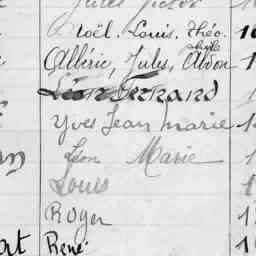 Jules Victor
Noël. Louis. Théo.
phyle
Albéric, Jules, Abdon
Léon Fernand
Yves Jean Marie
Léon Marie
Louis
Roger
René